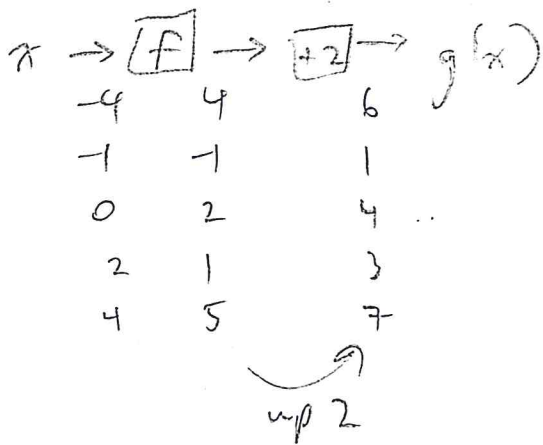 x → f → +2 → g(x)
-4 4 6
-1 -1 1
0 2 4 ..
2 1 3
4 5 7
up 2